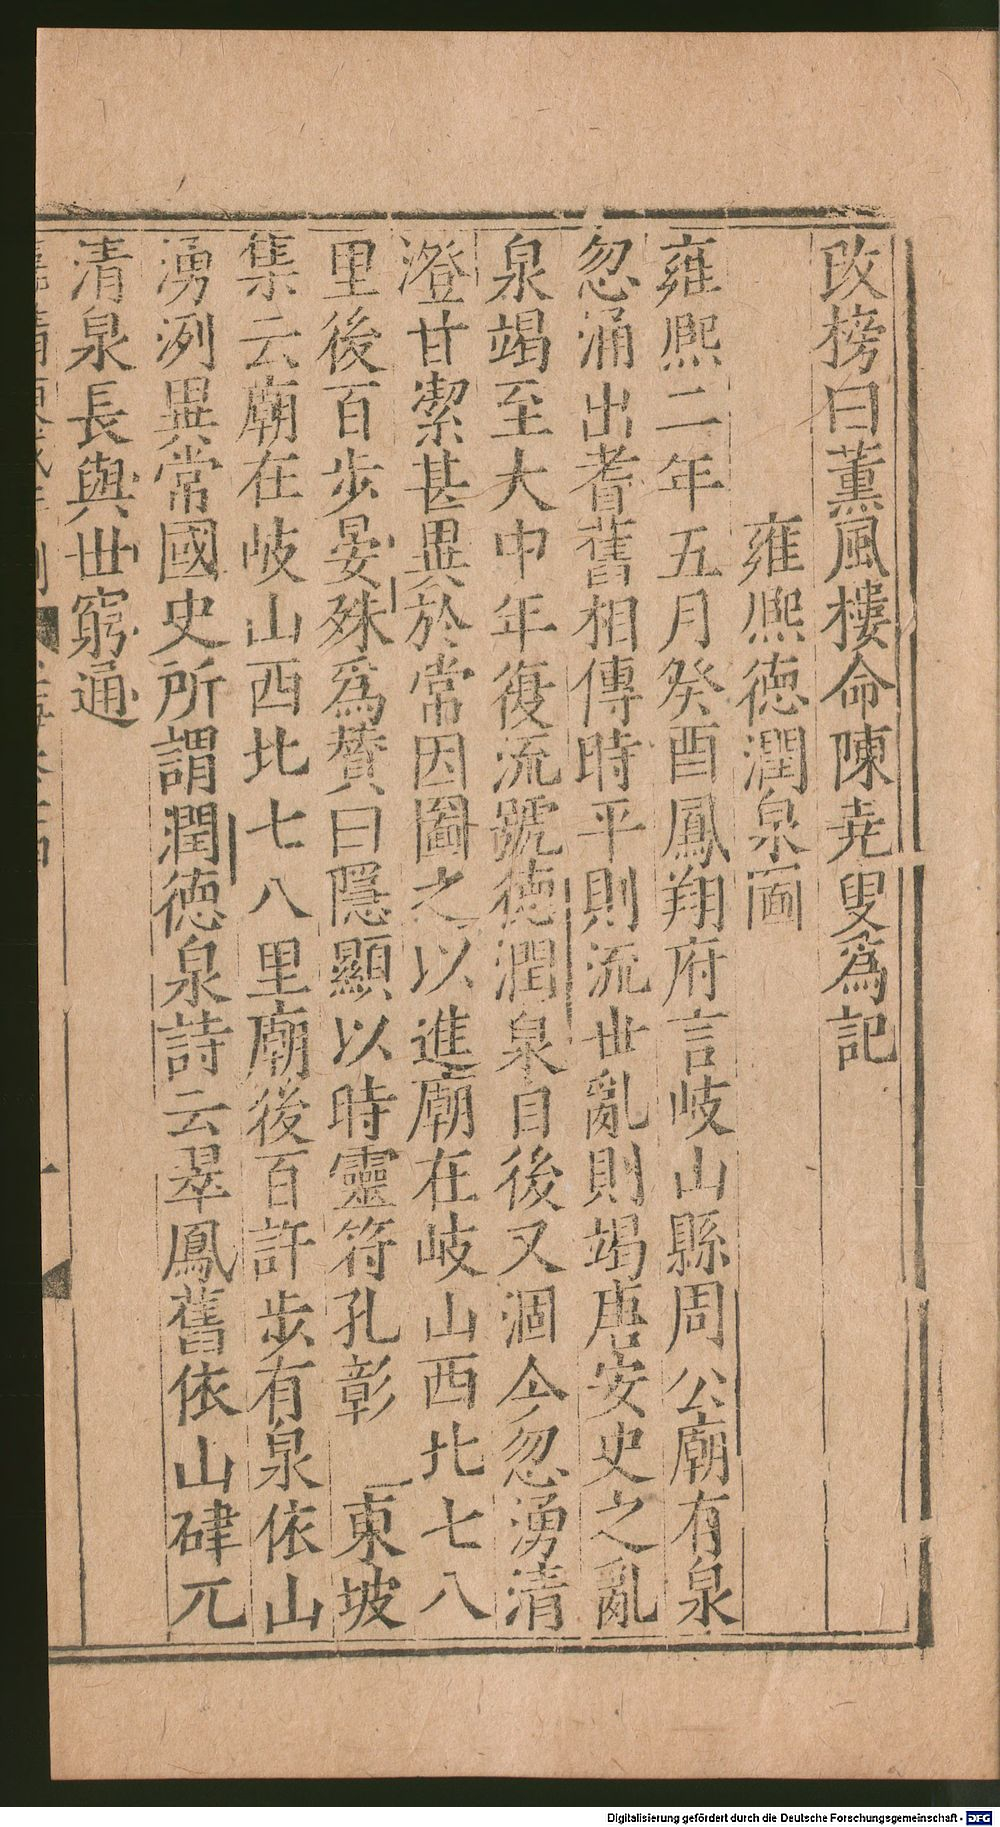 改榜曰薰風樓命陳堯叟爲記
雍熙德潤泉啚
雍熙二年五月癸酉鳳翔府言岐山縣周公廟有泉
忽涌出耆舊相傳時平則流世亂則竭唐安史之亂
泉竭至大中年復流號德潤泉自後又涸今忽湧清
澄甘潔甚異於常因圖之以進廟在岐山西北七八
里後百步晏殊爲贊曰隱顯以時靈符孔彰 東坡
集云廟在岐山西北七八里廟後百許步有泉依山
湧洌異常國史所謂潤德泉詩云翠鳳舊依山硉兀
清泉長與世窮通
Digitalisierung gefördert durch die Deutsche Forschungsgemeinschaft - DFG